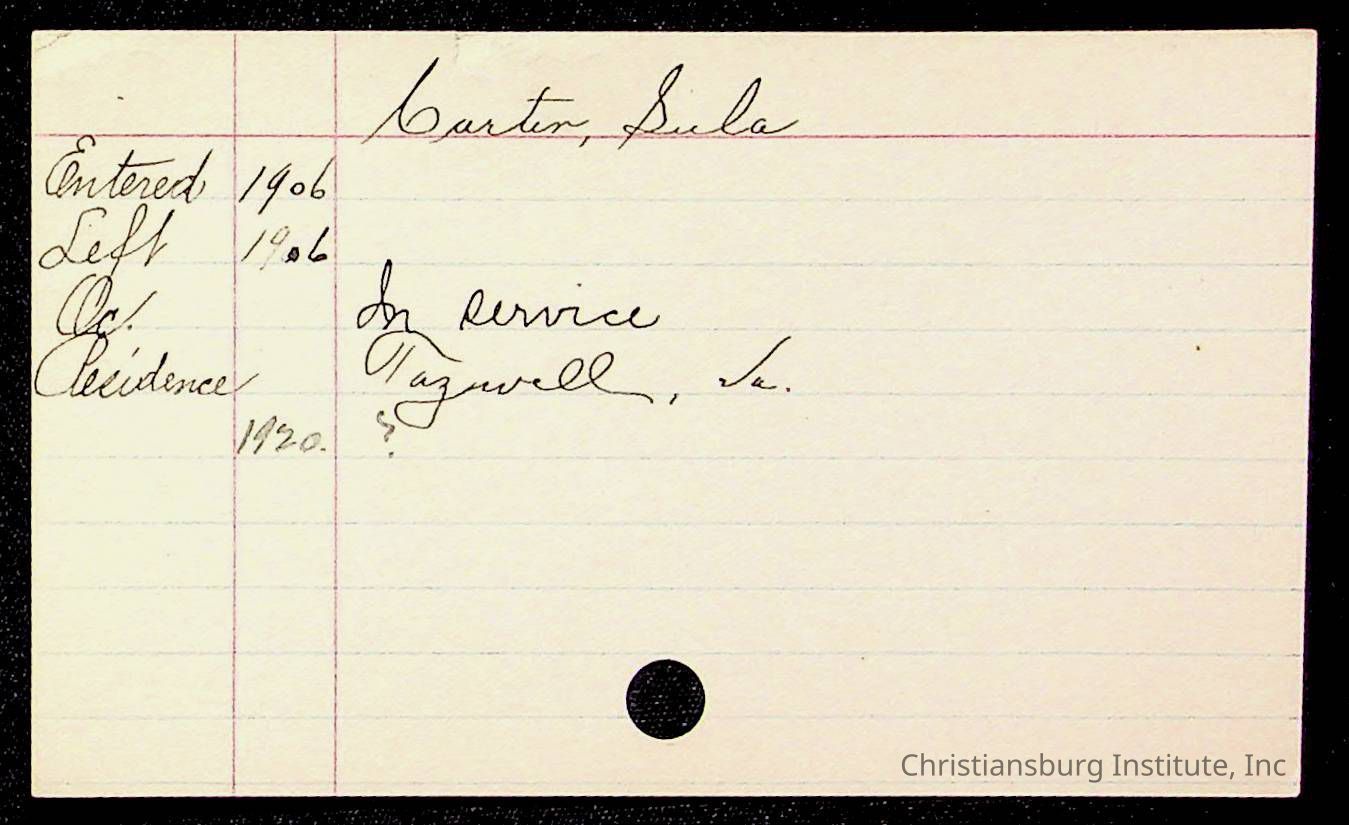 Carter, Sula
Entered 1906
Left 1906
Oc. In service
Residence Tazwell, Va.
1920. ?
Christiansburg Institute, Inc